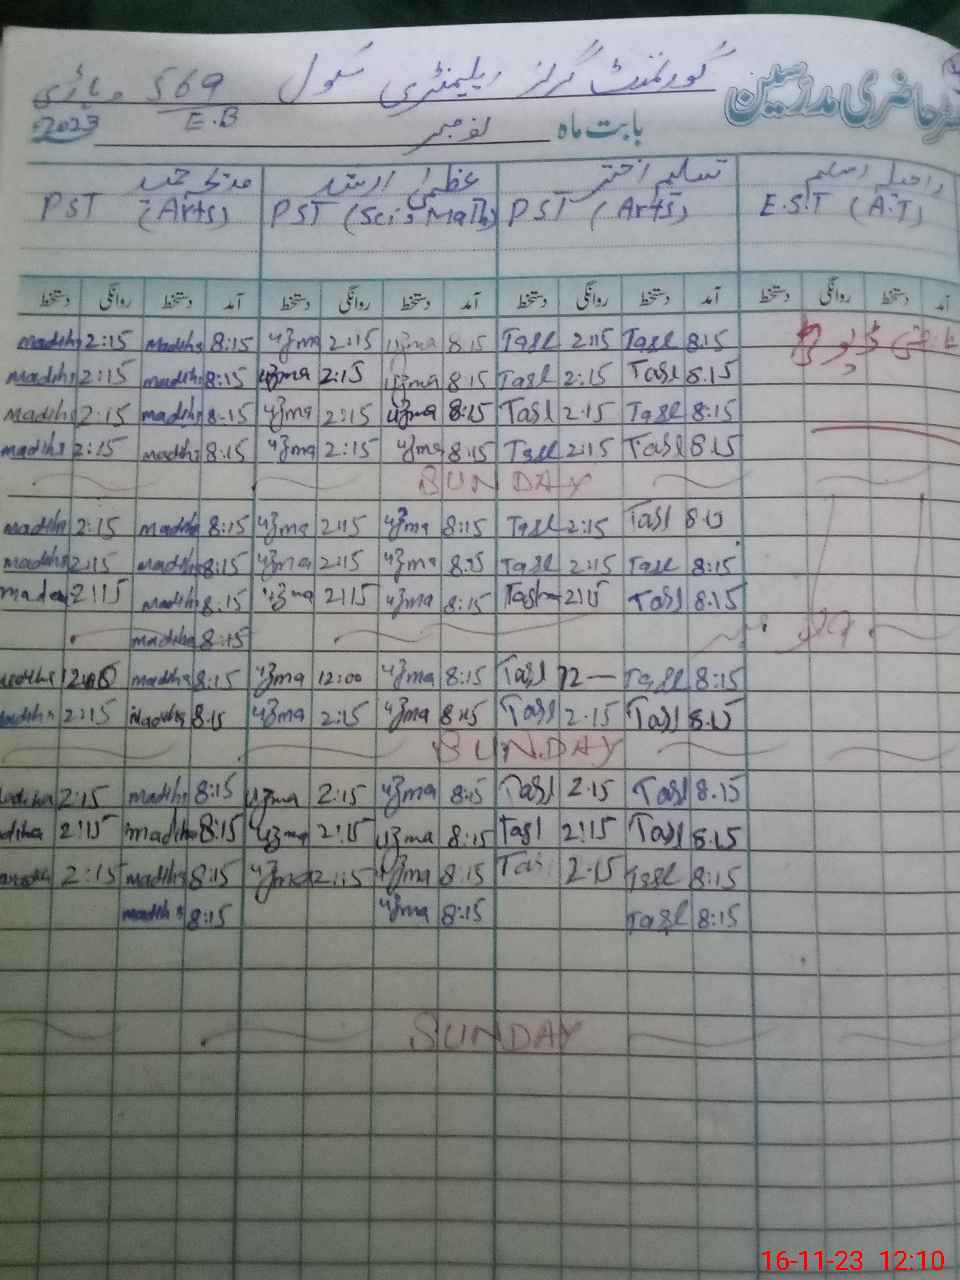 حاضری مدرسین گورنمنٹ گرلز ایلیمنٹری سکول 569 وہاڑی
E.B
بابت ماہ نومبر 2023
راحیلہ اسلم تسلیم اختر عظمیٰ ارشد مدیحہ
E.S.T (A.T) PST (Arts) PST (Sci & Math) PST (Arts)
آمد دستخط روانگی دستخط آمد دستخط روانگی دستخط آمد دستخط روانگی دستخط آمد دستخط روانگی دستخط
madiha 2:15 madiha 8:15 uzma 2:15 uzma 8:15 Tasl 2:15 Tasl 8:15
madiha 2:15 madiha 8:15 uzma 2:15 uzma 8:15 Tasl 2:15 Tasl 8:15
madiha 2:15 madiha 8:15 uzma 2:15 uzma 8:15 Tasl 2:15 Tasl 8:15
madiha 2:15 madiha 8:15 uzma 2:15 uzma 8:15 Tasl 2:15 Tasl 8:15
SUNDAY
madiha 2:15 madiha 8:15 uzma 2:15 uzma 8:15 Tasl 2:15 Tasl 8:15
madiha 2:15 madiha 8:15 uzma 2:15 uzma 8:15 Tasl 2:15 Tasl 8:15
madiha 2:15 madiha 8:15 uzma 2:15 uzma 8:15 Tasl 2:15 Tasl 8:15
madiha 8:15
madiha 12:00 madiha 8:15 uzma 12:00 uzma 8:15 Tasl 12 — Tasl 8:15
madiha 2:15 madiha 8:15 uzma 2:15 uzma 8:15 Tasl 2:15 Tasl 8:15
SUNDAY
madiha 2:15 madiha 8:15 uzma 2:15 uzma 8:15 Tasl 2:15 Tasl 8:15
madiha 2:15 madiha 8:15 uzma 2:15 uzma 8:15 Tasl 2:15 Tasl 8:15
madiha 2:15 madiha 8:15 uzma 2:15 uzma 8:15 Tasl 2:15 Tasl 8:15
madiha 8:15 uzma 8:15 Tasl 8:15
SUNDAY
16-11-23 12:10